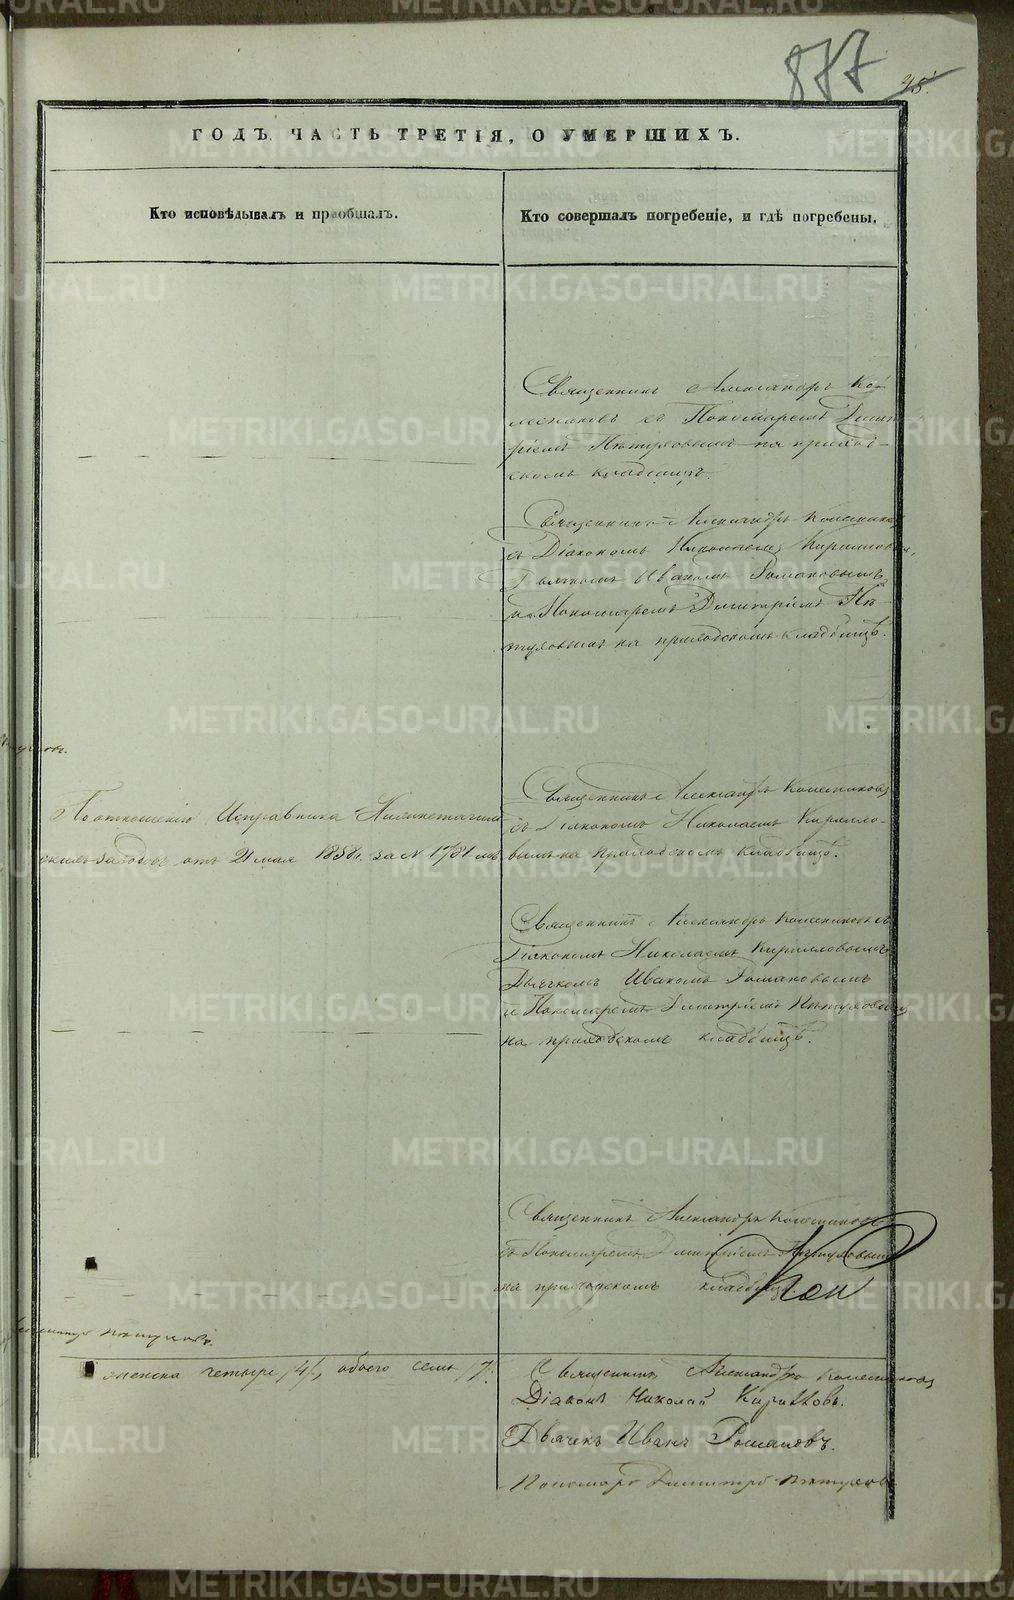 877
45.
ГОДЪ, ЧАСТЬ ТРЕТІЯ, О УМЕРШИХЪ.
Кто исповѣдывалъ и пріобщалъ.
Кто совершалъ погребеніе, и гдѣ погребены.
Священникъ Александръ Ко-
лесниковъ съ Пономаремъ Димит-
ріемъ Пѣтуховымъ на приход-
скомъ кладбищѣ.
Священникъ Александръ Колесниковъ
съ Діакономъ Николаемъ Кирилловымъ,
Дьячкомъ Иваномъ Романовымъ
и Пономаремъ Димитріемъ Пѣ-
туховымъ на приходскомъ кладбищѣ.
Священникъ Александръ Колесниковъ
съ Діакономъ Николаемъ Кирилло-
вымъ на приходскомъ кладбищѣ.
По отношенію Исправника Нижнетагиль-
скихъ заводовъ отъ 21 мая 1858 г. за № 1781мъ
Священникъ Александръ Колесниковъ съ
Діакономъ Николаемъ Кирилловымъ
Дьячкомъ Иваномъ Романовымъ
и Пономаремъ Димитріемъ Пѣтуховымъ
на приходскомъ кладбищѣ.
Священникъ Александръ Колесниковъ
съ Пономаремъ Димитріемъ Пѣтуховымъ
на приходскомъ кладбищѣ.
Димитрій Пѣтуховъ.
женска четыре /4/, обоего семь /7/.
Священникъ Александръ Колесниковъ
Діаконъ Николай Кирилловъ.
Дьячекъ Иванъ Романовъ.
Пономарь Димитрій Пѣтуховъ
METRIKI.GASO-URAL.RU